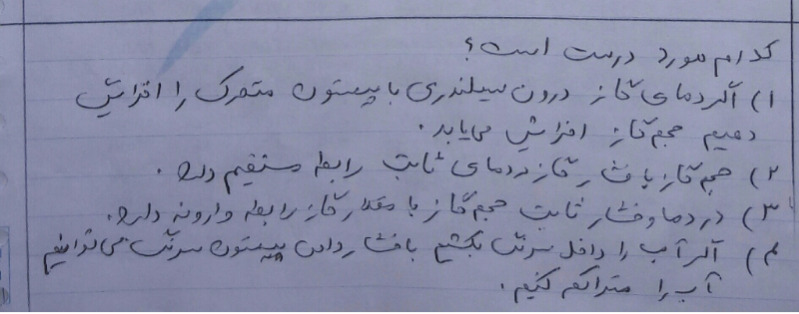 کدام مورد درست است؟
۱) اگر دمای گاز درون سیلندری با پیستون متحرک را افزایش
دهیم حجم گاز افزایش می‌یابد.
۲) حجم گاز با فشار گاز در دمای ثابت رابطه مستقیم دارد.
۳) در دما و فشار ثابت حجم گاز با مقدار گاز رابطه وارونه دارد.
۴) اگر آب را داخل سرنگ بکشیم با فشار دادن پیستون سرنگ می‌توانیم
آب را متراکم کنیم.